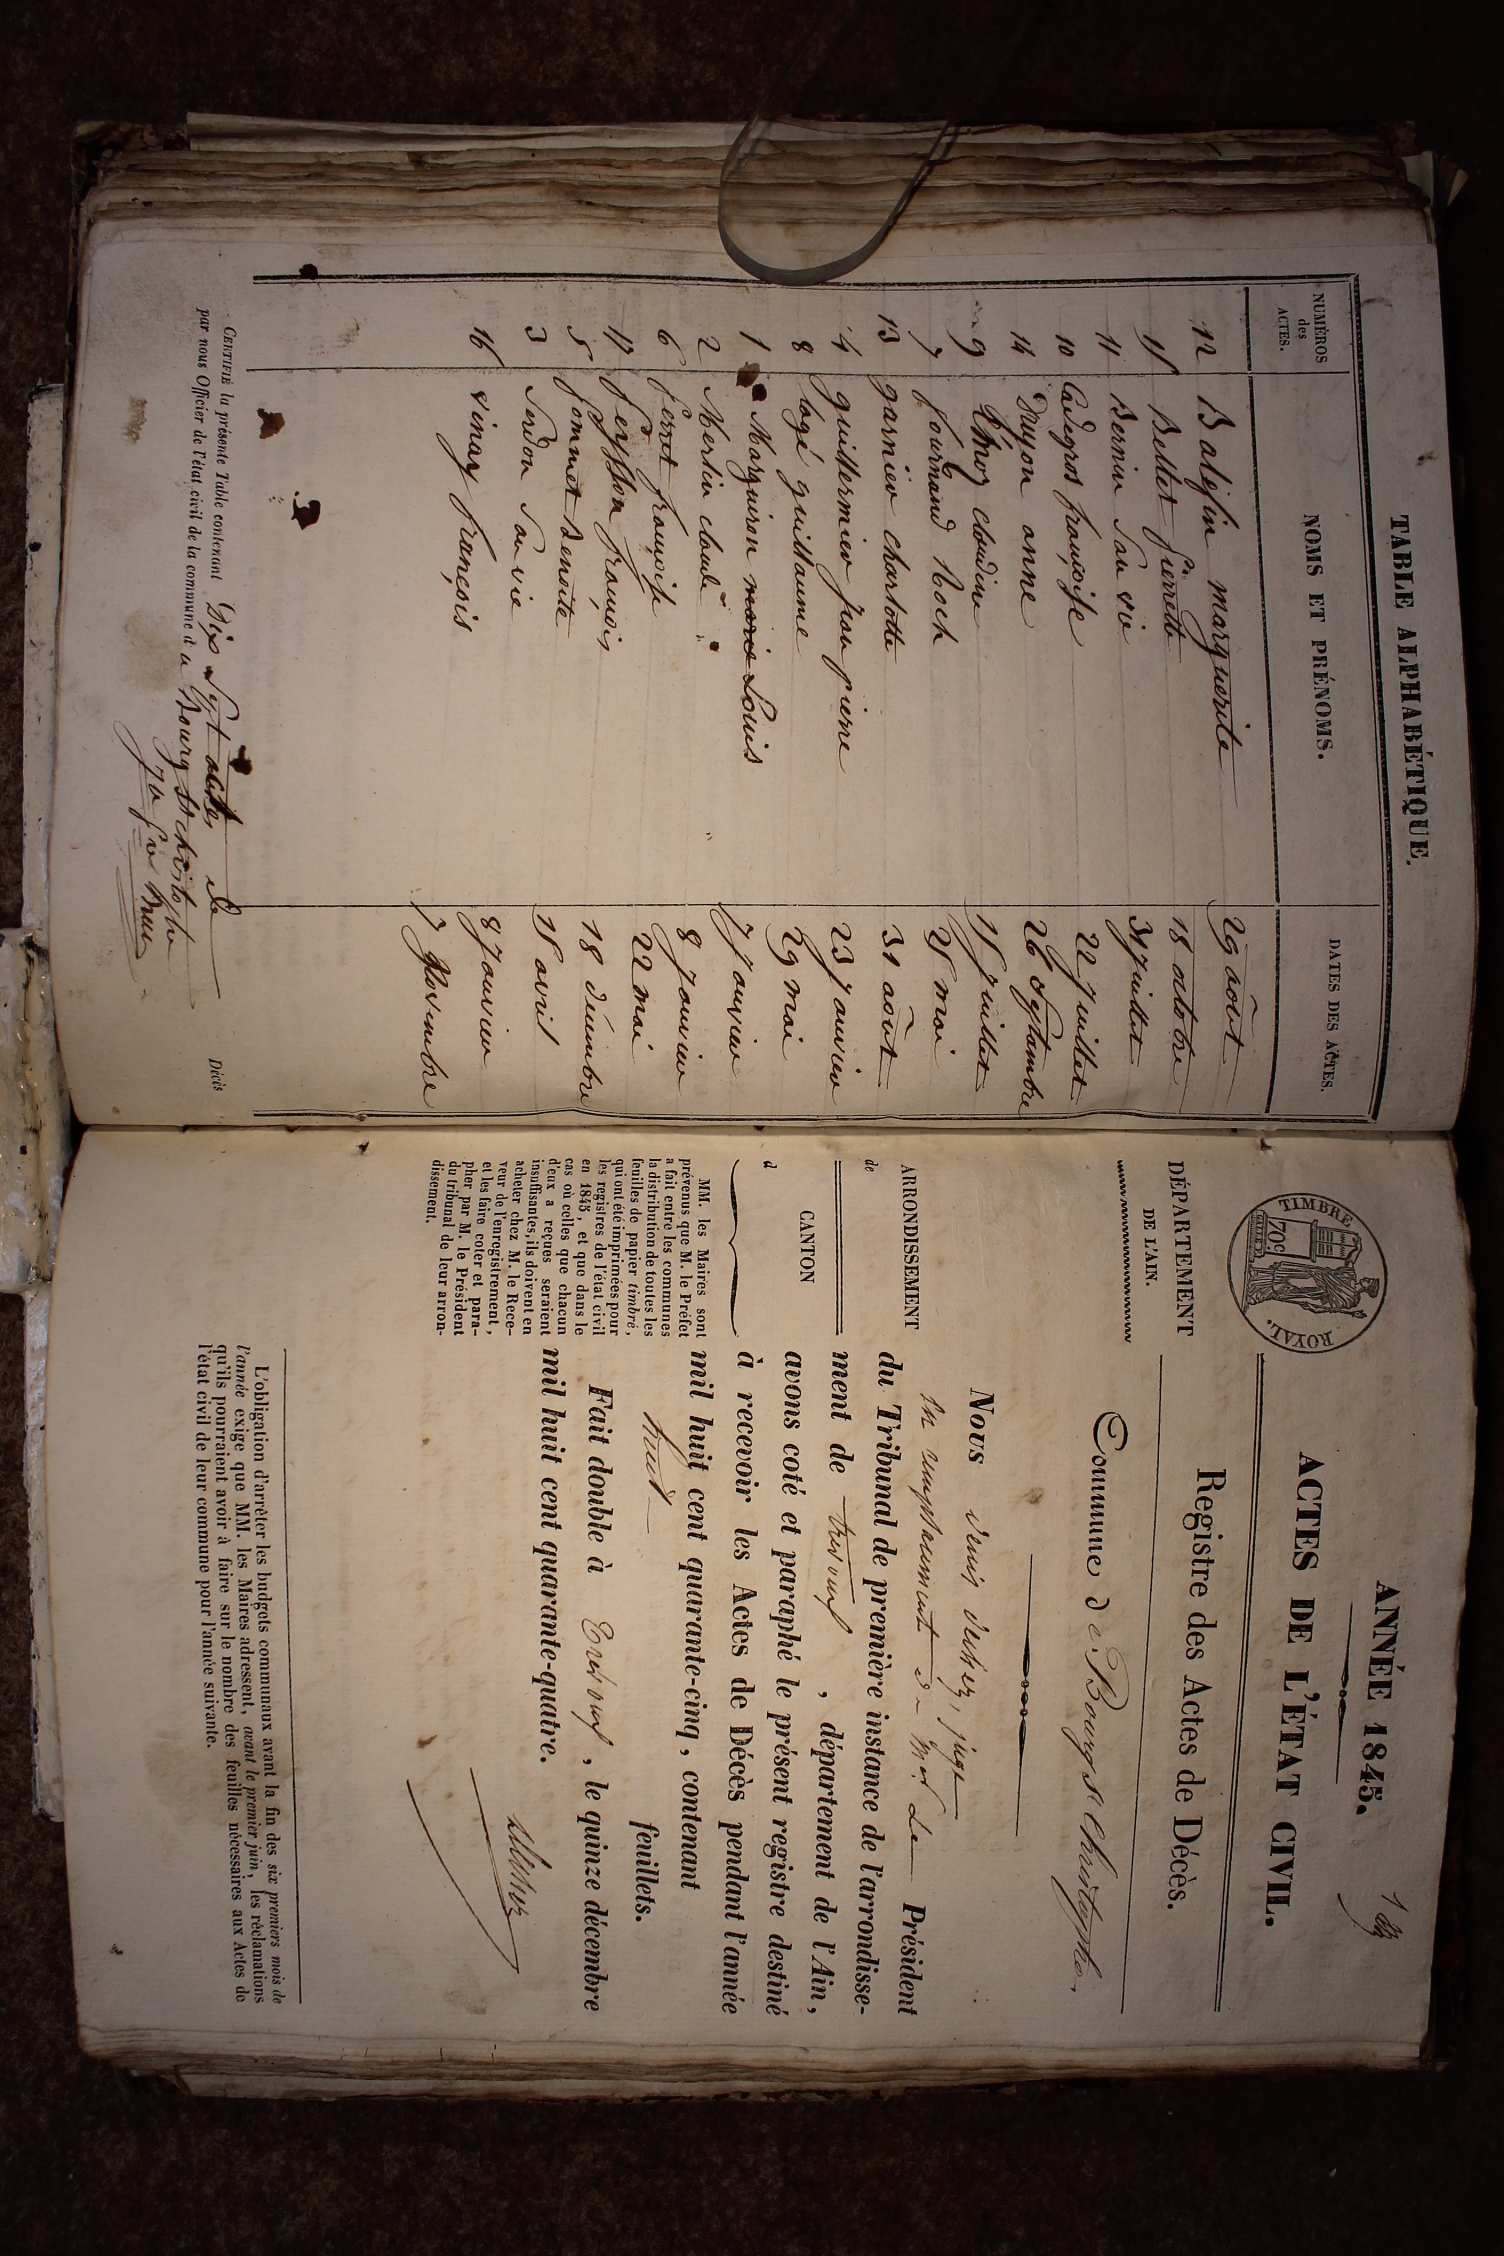 TABLE ALPHABÉTIQUE.
NUMÉROS des ACTES. NOMS ET PRÉNOMS. DATES DES ACTES.
12 marguerite 29 août
15 Bellet pierrette 18 octobre
11 Bernin 31 juillet
10 françoise 22 juillet
14 Druyon anne 26 septambre
9 claudine 15 juillet
7 Roch 25 mai
13 garnier charlotte 31 août
4 guillermier jean pierre 23 janvier
8 logé guillaume 29 mai
1 Marguiron marie Louis 7 janvier
2 Merlin claude 8 janvier
6 perret françoise 22 mai
17 françois 18 décembre
5 pommet Benoite 15 avril
3 8 janvier
16 vinay françois 7 Novembre
CERTIFIÉ la présente Table contenant Dix Sept actes
par nous Officier de l'état civil de la commune d e Bourg St christophe
Décès
1
TIMBRE ROYAL.
70c
ANNÉE 1845.
ACTES DE L'ÉTAT CIVIL.
Registre des Actes de Décès.
DÉPARTEMENT
DE L'AIN.
Commune de Bourg St Christophe.
ARRONDISSEMENT
de
CANTON
d
MM. les Maires sont
prévenus que M. le Préfet
a fait entre les communes
la distribution de toutes les
feuilles de papier timbré,
qui ont été imprimées pour
les registres de l'état civil
en 1845, et que dans le
cas où celles que chacun
d'eux a reçues seraient
insuffisantes, ils doivent en
acheter chez M. le Rece-
veur de l'enregistrement,
et les faire coter et para-
pher par M. le Président
du tribunal de leur arron-
dissement.
Nous juge
en remplacement de Mr Le Président
du Tribunal de première instance de l'arrondisse-
ment de trevoux, département de l'Ain,
avons coté et paraphé le présent registre destiné
à recevoir les Actes de Décès pendant l'année
mil huit cent quarante-cinq, contenant
huit feuillets.
Fait double à Trevoux, le quinze décembre
mil huit cent quarante-quatre.
L'obligation d'arrêter les budgets communaux avant la fin des six premiers mois de
l'année exige que MM. les Maires adressent, avant le premier juin, les réclamations
qu'ils pourraient avoir à faire sur le nombre des feuilles nécessaires aux Actes de
l'état civil de leur commune pour l'année suivante.